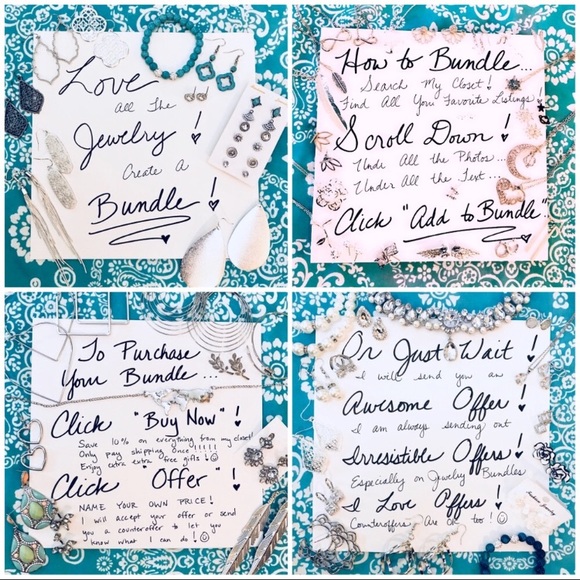 Love
All The
Jewelry!
Create A
Bundle!
How to Bundle...
Search My Closet!
Find All You Favorite Listings!
Scroll Down!
Unde All the Photos...
Under All the Text...
Click "Add to Bundle"
To Purchase
Your Bundle...
Click "Buy Now"!
Save 10% on everything from my closet
Only pay shipping once!!!!!
Enjoy extra extra free gifts!
Click "Offer"!
NAME YOUR OWN PRICE!
I will accept your offer or send
you a counteroffer to let you
know what I can do!
Or Just Wait!
I will send you an
Awesome Offer!
I am always sending out
Irresistible Offers!
Especially on Jewelry Bundles
I Love Offers!
Counteroffers Are ok too!